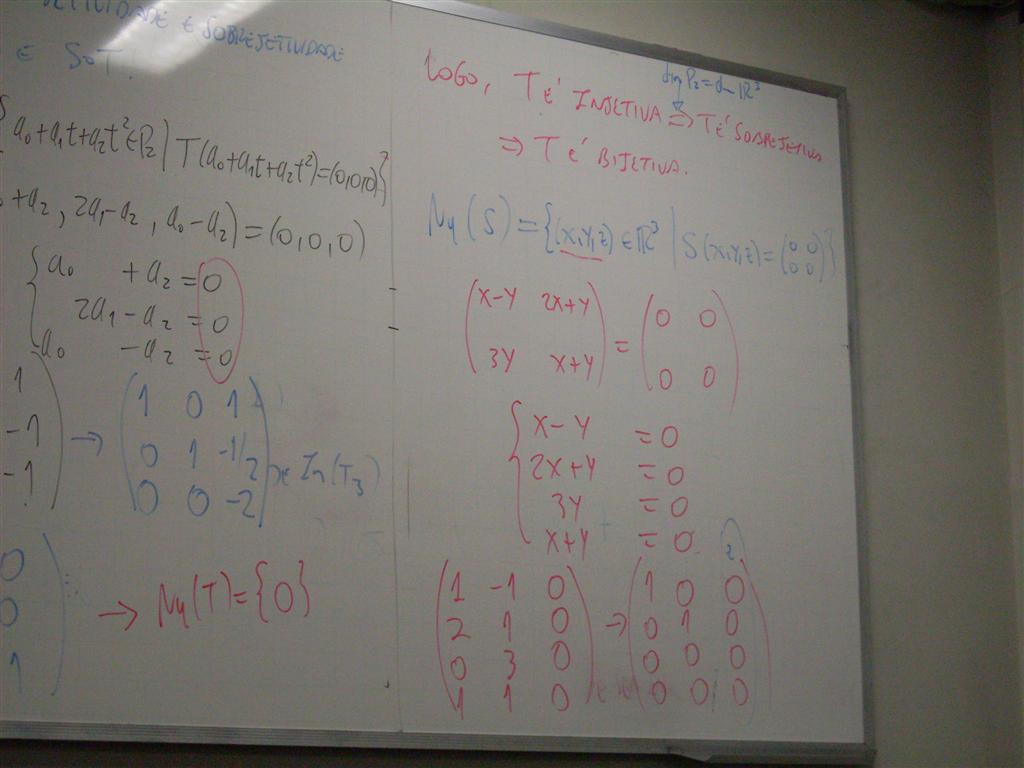 E SOBREJETIVIDADE
E SOT.
a₀+a₁t+a₂t²∈P₂ | T(a₀+a₁t+a₂t²)=(0,0,0)}
+a₂, 2a₁-a₂, a₀-a₂)=(0,0,0)
{a₀ +a₂ =0
2a₁-a₂ =0
a₀ -a₂ =0
1
-1
-1
→
1 0 1
0 1 -1/2
0 0 -2
0
0
1
→ Nu(T)={0}
LOGO, T É INJETIVA ⇒ T É SOBREJETIVA
dim P₂=dim ℝ³
⇒ T É BIJETIVA.
Nu(S)={(x,y,z)∈ℝ³ | S(x,y,z)=(0 0
0 0)}
(x-y 2x+y
3y x+y) = (0 0
0 0)
{x-y =0
2x+y =0
3y =0
x+y =0
(1 -1 0
2 1 0
0 3 0
1 1 0)
→
z
(1 0 0
0 1 0
0 0 0
0 0 0)